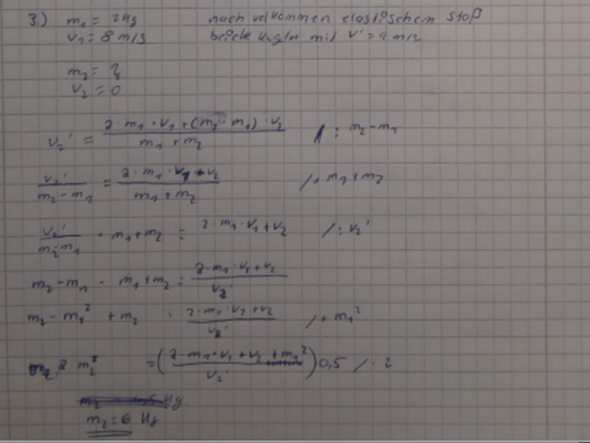 3.) m₁ = 2 kg nach vollkommen elastischem Stoß
v₁ = 8 m/s beide Kugeln mit v' = 4 m/s
m₂ = ?
v₂ = 0
v₂' = (2·m₁·v₁+(m₂-m₁)·v₂)/(m₁+m₂) /: m₂-m₁
v₂'/(m₂-m₁) = (2·m₁·v₁+v₂)/(m₁+m₂) /· m₁+m₂
v₂'/(m₂-m₁) · m₁+m₂ = 2·m₁·v₁+v₂ /: v₂'
m₂-m₁ · m₁+m₂ = (2·m₁·v₁+v₂)/v₂'
m₂-m₁² + m₂ = (2·m₁·v₁+v₂)/v₂' /+m₁²
2·m₂² = ((2·m₁·v₁+v₂+m₁²)/v₂')0,5 /·2
m₂=6 kg